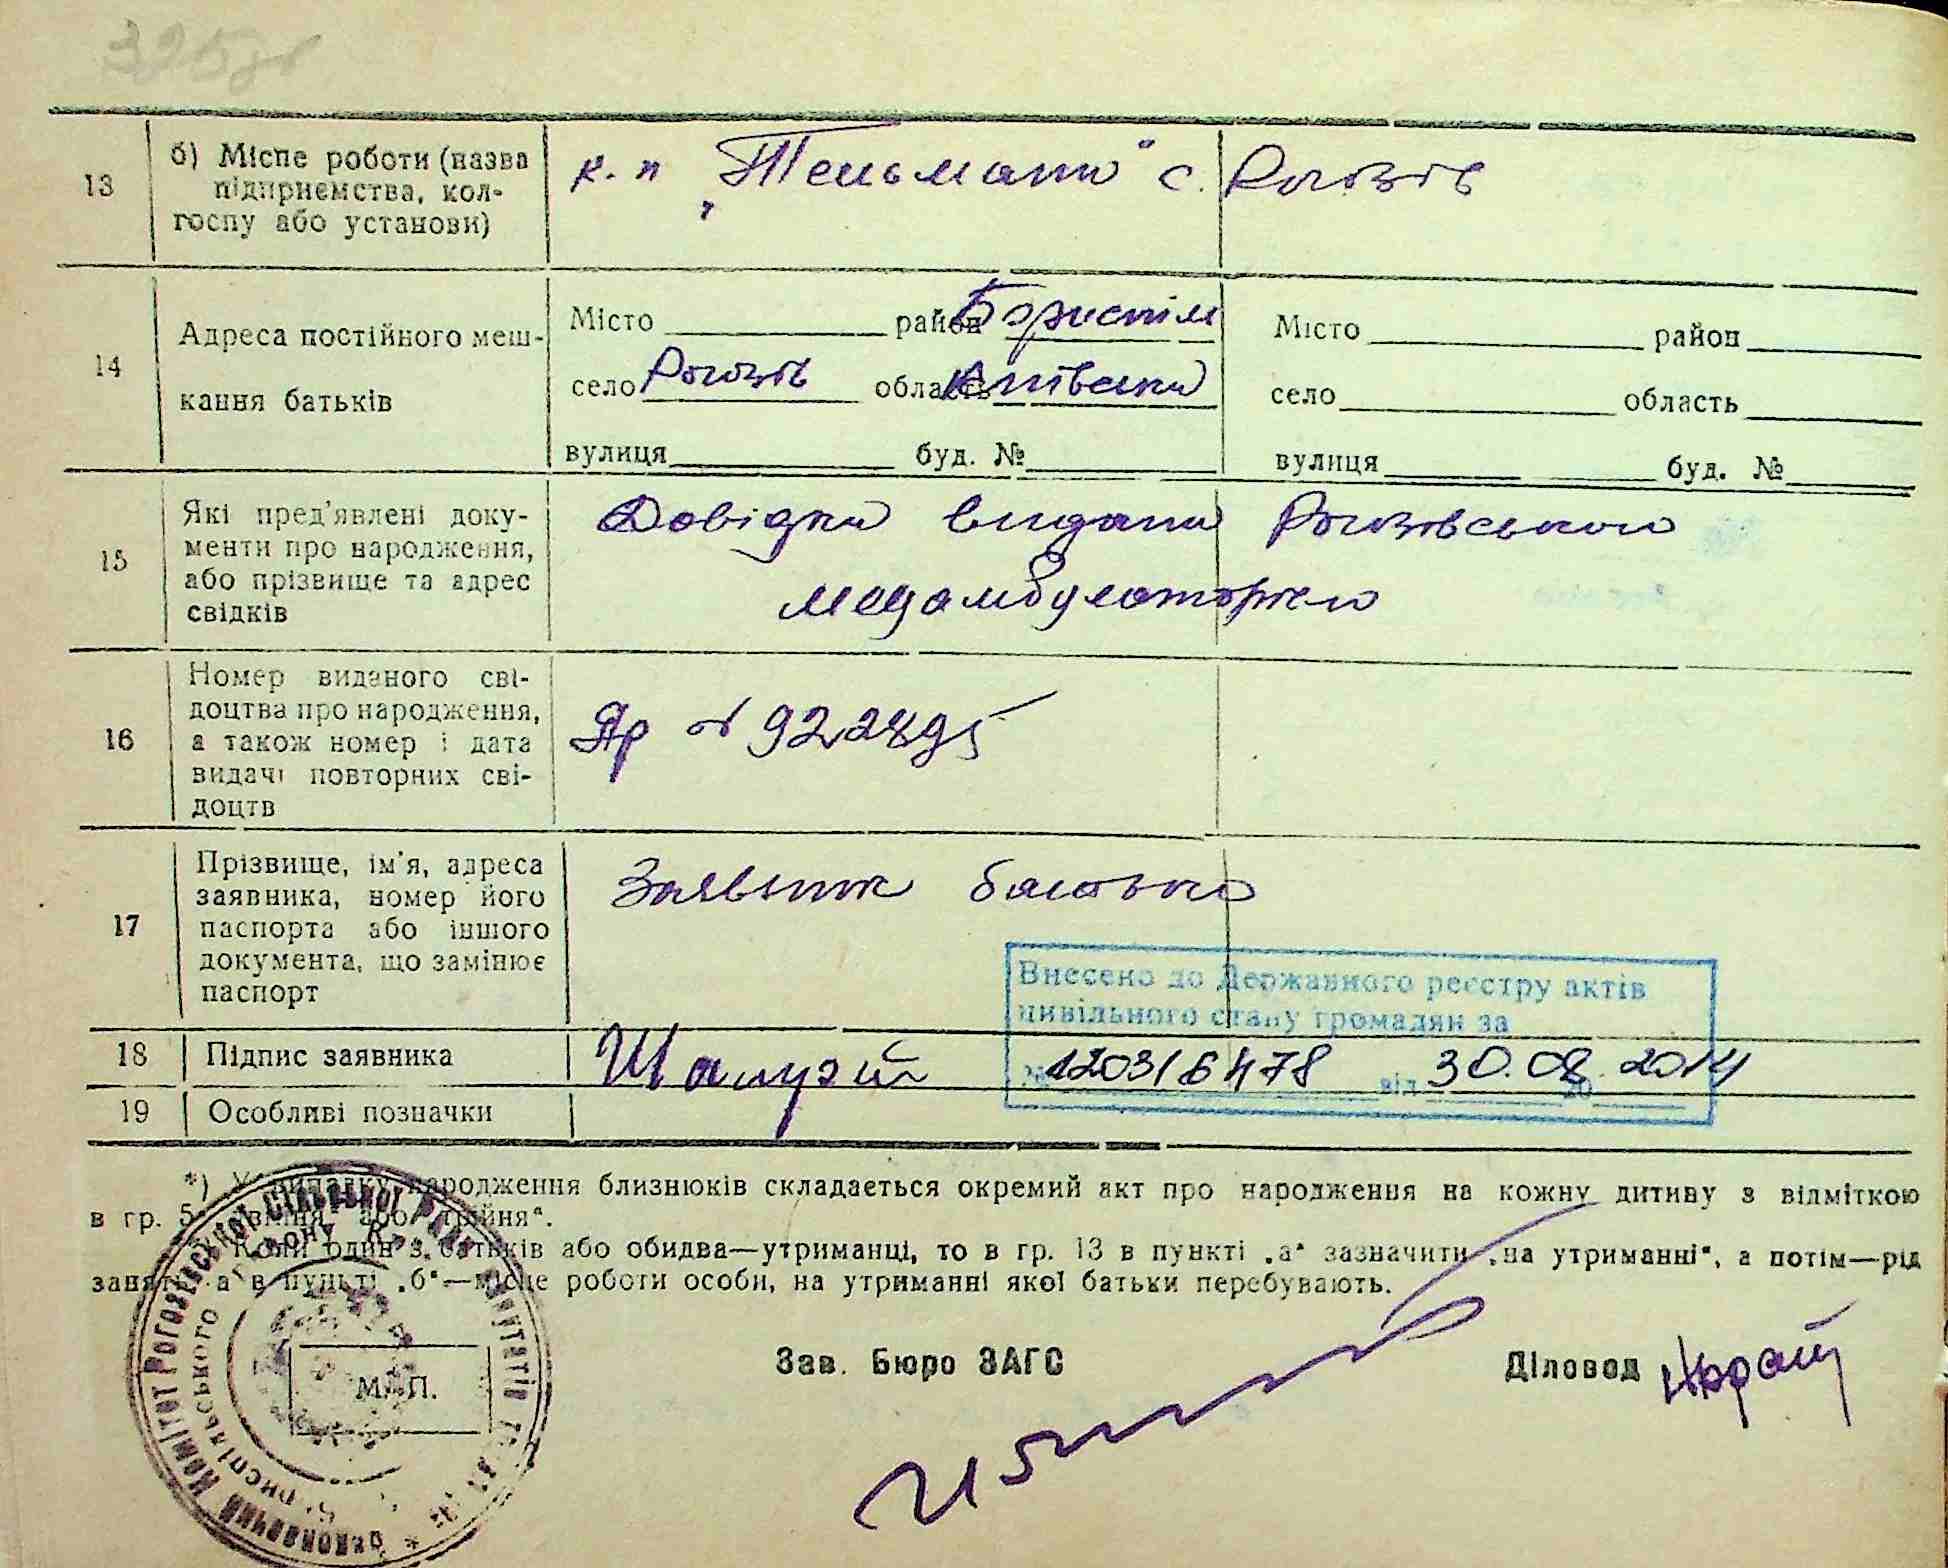 13
б) Місце роботи (назва
підприємства, кол-
госпу або установи)
к. п „Тельмана" с. Рогозів
14
Адреса постійного меш-
кання батьків
Місто район Бориспіл
село Рогозів область Київська
вулиця буд. №
Місто район
село область
вулиця буд. №
15
Які пред'явлені доку-
менти про народження,
або прізвище та адрес
свідків
Довідка видана Рогозівського
медамбулаторією
16
Номер виданого сві-
доцтва про народження,
а також номер і дата
видачі повторних сві-
доцтв
№ 922895
17
Прізвище, ім'я, адреса
заявника, номер його
паспорта або іншого
документа, що замінює
паспорт
Заявник батько
Внесено до Державного реєстру актів
цивільного стану громадян за
№ 120316478 від 30.08.2014
18
Підпис заявника
19
Особливі позначки
*) У випадку народження близнюків складається окремий акт про народження на кожну дитину з відміткою
в гр. 5 „двійня" або „трійня".
Коли один з батьків або обидва—утриманці, то в гр. 13 в пункті „а" зазначити „на утриманні", а потім—рід
занять, а в пункті „б"—місце роботи особи, на утриманні якої батьки перебувають.
М. П.
Зав. Бюро ЗАГС
Діловод